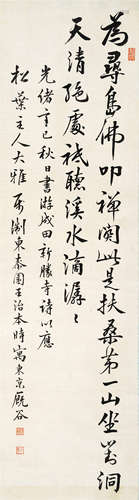 為尋集佛叩禪關此是扶桑第一山坐對洞
天清絕處祗聽溪水滴潺潺
光緒辛巳秋日書游成田新勝寺詩以應
松葉主人大雅 浙東泰園王治本時寓東京厩谷